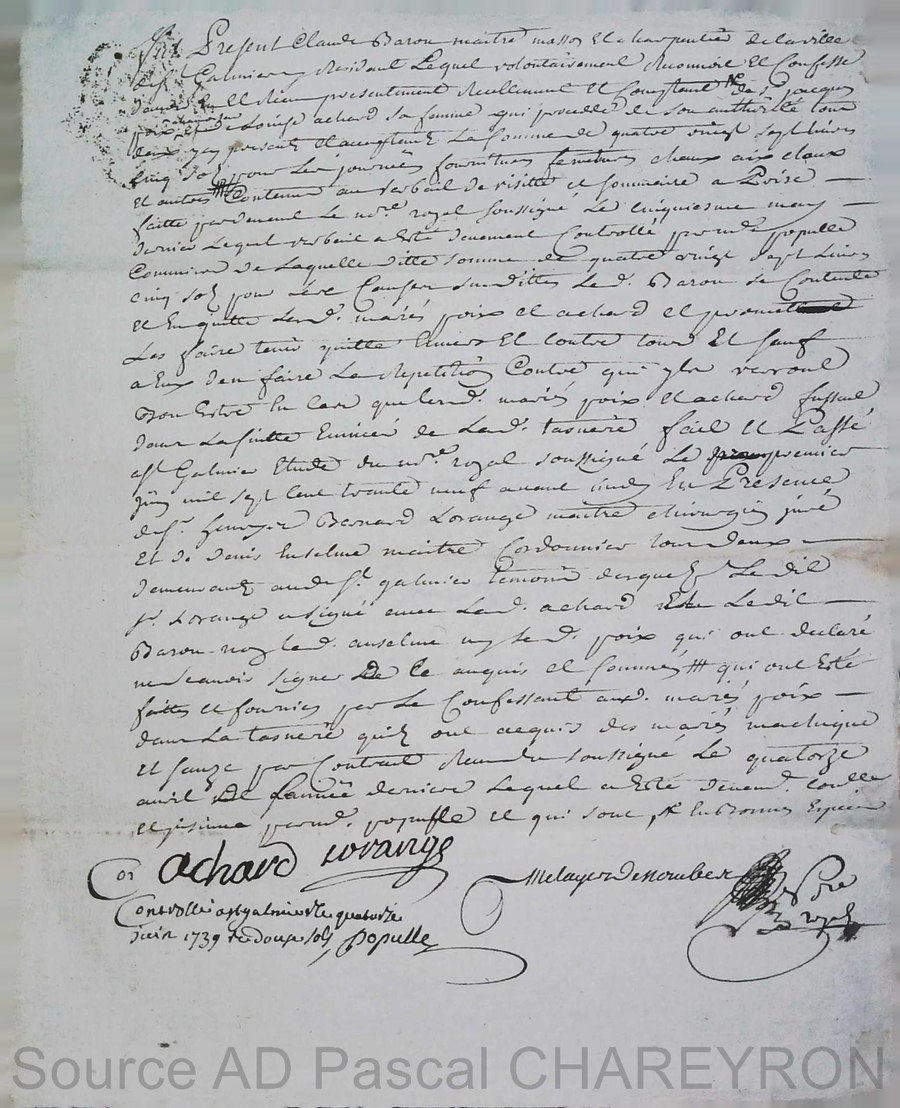 Fut Present Claude Baron maitre masson Et charpentié de la ville
de st Galmier y Residant Lequel volontairement Reconnoit Et Confesse
avoir Eu Et Receu presentement Reellement Et Comptant de sr Jacques
poix Et de Louise achard sa femme qui procedde de son authorité tous
deux icy presents Et acceptants La somme de quatre vingt sept livres
cinq sols pour Les journées fournitures chaux aix cloux
Et autres Contenue au verbail de visitte et sommaire a Prise —
faitte pardevant Le nore royal soussigné Le cinquiesme mars —
dernier Lequel verbail a Esté deuement Controllé par mr populle
Commis de Laquelle ditte somme de quatre vingt sept Livres
cinq sols pour Les Causes susdittes Led. Baron se Contente
Et En quitte Lesd. mariés poix et achard et promet
Les faire tenir quitte Envers Et Contre tous Et sauf
a Eux d'en faire La Repetition Contre qui ils verront
Bon Estre En Cas que lesd. mariés poix et achard fussent
dans La suitte Evincés de Lad. tasnerie fait et Passé
a st Galmier Etude du nore royal soussigné Le premier
juin mil sept Cent trante neuf avant midy En Presence
de sr Bernard Lorange maitre chirurgien juré
Et de denis Enselme maitre Cordonnier tous deux —
demeurants aud. st galmier temoins desquels Le dit
sr Lorange a signé avec Lad. achard Ledit —
Baron ny led. anselme ny led. poix qui ont declaré
ne scavoir signer de ce anquis et sommés qui ont Esté
faittes et fournies par Le Confessant aud. mariés poix —
dans La tasnerie quils ont acquis des mariés
Et par Contrat Receu du soussigné Le quatorze
avril de L'année derniere Lequel a Esté deuemt. Conllé
et jnsinué par mr. populle et qui sont En Bonnes Especes
achard Lorange
Controllé a st galmier le quatorze
juin 1739 R douze sols populle